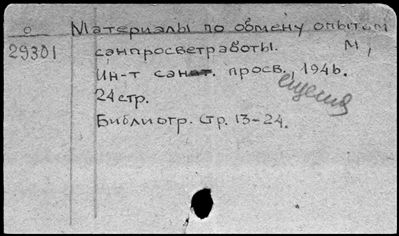 о Материалы по обмену опытом
29301 санпросветработы. М,
Ин-т санат. просв. 1946.
24 стр.
Библиогр. Стр. 13-24.